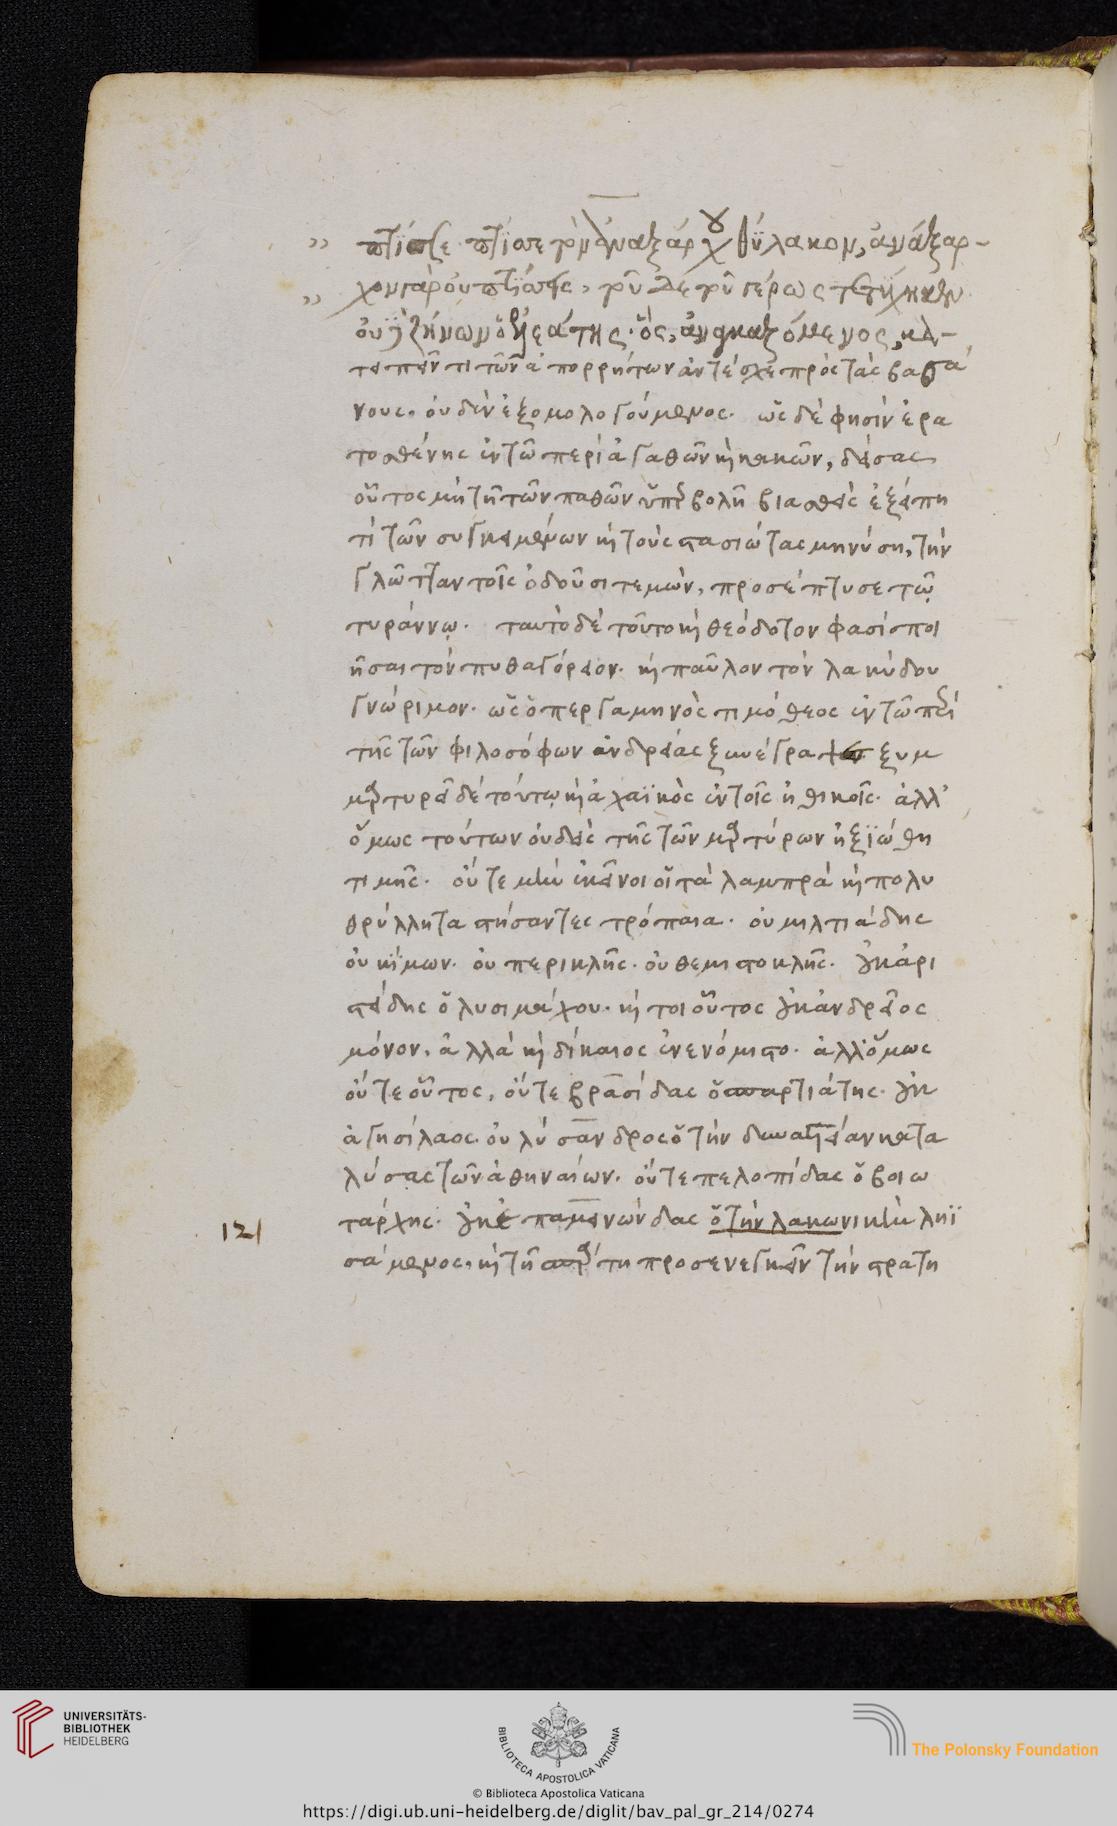 πτίσσε πτίσσε τὸν ἀναξάρχου θύλακον, ἀνάξαρ-
χον γὰρ οὐ πτίσσεις, τοῦ δὲ τοῦ γέρως τετύχηκεν
οὐχὶ ζήνων ὁ ἐλεάτης. ὃς, ἀναγκαζόμενος, κα-
τειπεῖν τι τῶν ἀπορρήτων ἀντέσχε πρὸς τὰς βασά
νους, οὐδὲν ἐξομολογούμενος. ὡς δέ φησιν ἐρα
τοσθένης ἐν τῷ περὶ ἀγαθῶν καὶ κακῶν, δείσας
οὗτος μὴ τῇ τῶν παθῶν ὑπερβολῇ βιασθεὶς ἐξείπη
τὶ τῶν συγκειμένων καὶ τοὺς στασιώτας μηνύση, τὴν
γλῶτταν τοῖς ὀδοῦσι τεμὼν, προσέπτυσε τῷ
τυράννῳ. ταυτὸ δὲ τοῦτο καὶ θεόδοτον φασὶ ποι
ῆσαι τὸν πυθαγόρειον. καὶ παῦλον τὸν λακύδου
γνώριμον. ὡς ὁ περγαμηνὸς τιμόθεος ἐν τῷ περὶ
τῆς τῶν φιλοσόφων ἀνδρείας ξυνέγραψε ξυμ
μαρτυρεῖ δὲ τούτῳ καὶ ἀχαϊκὸς ἐν τοῖς ἠθικοῖς. ἀλλ'
ὅμως τούτων οὐδεὶς τῆς τῶν μαρτύρων ἠξϊώθη
τιμῆς. οὔτε μὴν ἐκεῖνοι οἳ τὰ λαμπρὰ καὶ πολυ
θρύλλητα στήσαντες τρόπαια. οὐ μιλτιάδης
οὐ κίμων. οὐ περικλῆς. οὐ θεμιστοκλῆς. οὐκ ἀρι
στείδης ὁ λυσιμάχου. καίτοι οὗτος οὐκ ἀνδρεῖος
μόνον, ἀλλὰ καὶ δίκαιος ἐνενόμιστο. ἀλλ' ὅμως
οὔτε οὗτος, οὔτε βρασίδας ὁ σπαρτιάτης. οὐκ
ἀγησίλαος. οὐ λύσανδρος ὁ τὴν δυναστείαν κατα
λύσας τῶν ἀθηναίων. οὔτε πελοπίδας ὁ βοιω
τάρχης. οὐκ ἐπαμεινώνδας ὁ τὴν λακωνικὴν ληϊ
121
σάμενος, καὶ τῇ σπάρτῃ προσενεγκεῖν τὴν στρατη
UNIVERSITÄTS-
BIBLIOTHEK
HEIDELBERG
BIBLIOTECA APOSTOLICA VATICANA
The Polonsky Foundation
© Biblioteca Apostolica Vaticana
https://digi.ub.uni-heidelberg.de/diglit/bav_pal_gr_214/0274